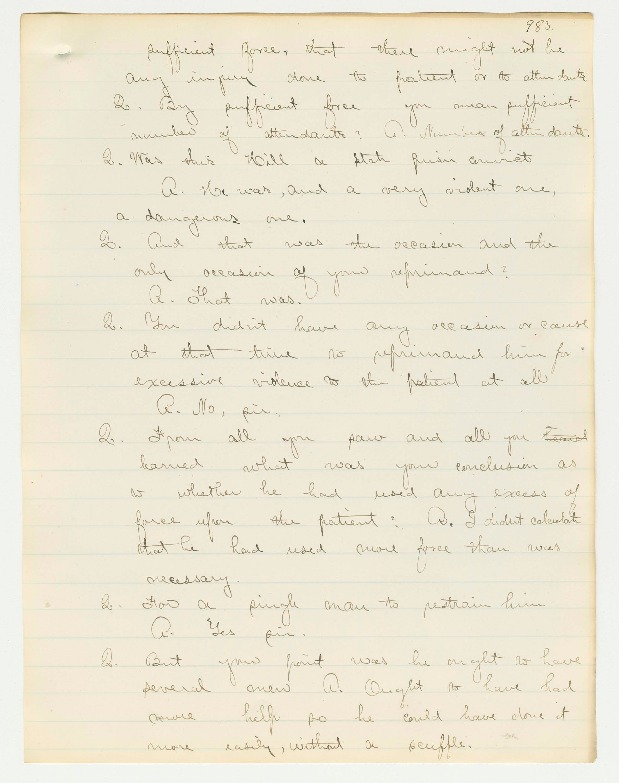 983.
sufficient force, that there might not be
any injury done to patient or to attendants
Q. By sufficient force you mean sufficient
number of attendants? A. Number of attendants.
Q. Was this Hill a state prison convict
A. He was, and a very violent one,
a dangerous one.
Q. And that was the occasion and the
only occasion of your reprimand?
A. That was.
Q. You didn't have any occasion or cause
at that time to reprimand him for
excessive violence to the patient at all
A. No, sir.
Q. From all you saw and all you
learned what was your conclusion as
to whether he had used any excess of
force upon the patient? A. I didn't calculate
that he had used more force than was
necessary.
Q. For a single man to restrain him
A. Yes sir.
Q. But your point was he ought to have
several men A. Ought to have had
more help so he could have done it
more easily, without a scuffle.